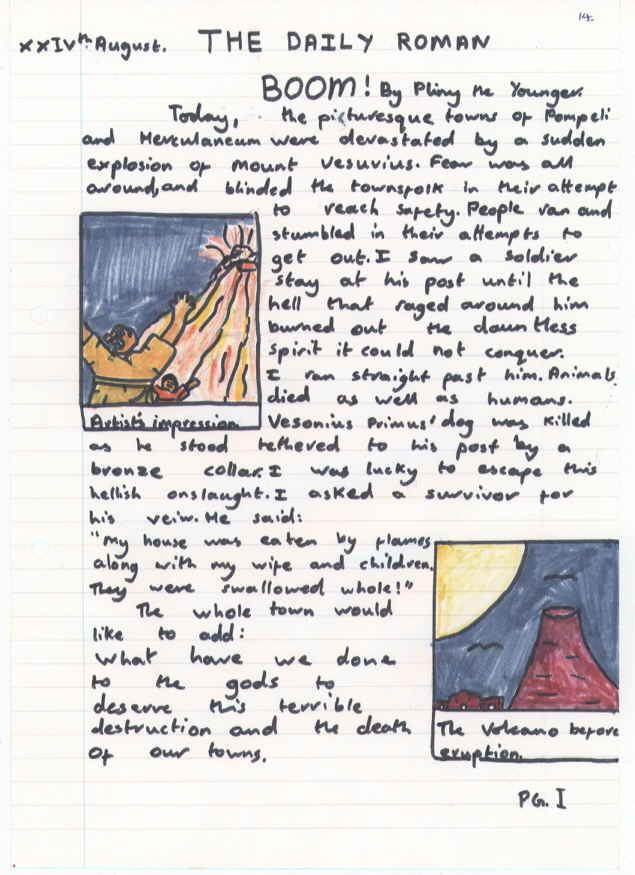 14.
XXIVth August. THE DAILY ROMAN
BOOM! By Pliny the Younger.
Today, the picturesque towns of Pompeii
and Herculaneum were devastated by a sudden
explosion of Mount Vesuvius. Fear was all
around, and blinded the townsfolk in their attempt
to reach safety. People ran and
stumbled in their attempts to
get out. I saw a soldier
stay at his post until the
hell that raged around him
burned out the dauntless
spirit it could not conquer.
I ran straight past him. Animals
died as well as humans.
Vesonius Primus' dog was killed
as he stood tethered to his post by a
bronze collar. I was lucky to escape this
hellish onslaught. I asked a survivor for
his veiw. He said:
"My house was eaten by flames
along with my wife and children.
They were swallowed whole!"
The whole town would
like to add:
What have we done
to the gods to
deserve this terrible
destruction and the death
of our towns.
Artist's impression.
The Volcano before
eruption.
PG. I